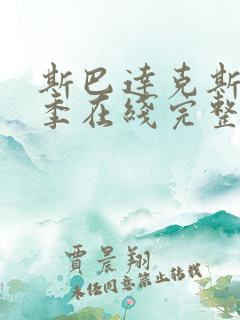 斯巴達克斯
季在綫完整
賈晨翔
未經同意禁止轉載